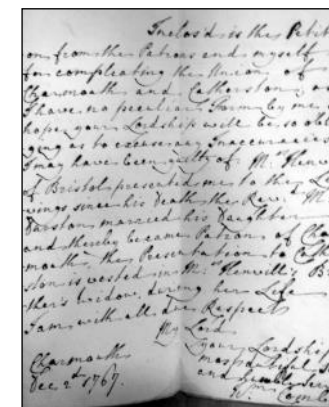 Inclos'd is the Petit
on from the Patrons and myself
for compleating the Union of
Charmouth and Catherston, as
I have no peculiar Form by me I
hope your Lordship will be so obli
ging as to excuse any Inaccuracies
I may have been guilty of Mr. Henvill
of Bristol presented me to the Li
vings since his Death the Revd. Mr.
Durston married his Daughter
and thereby became Patron of Char
mouth, the Presentation to Cather
ston is vested in Mr. Henvill's Bro
ther's widow during her Life
I am with all due Respect
My Lord
your Lordship
most dutiful S
and humble Serv
Charmouth
Decr. 2d. 1767.
Wm. Comb